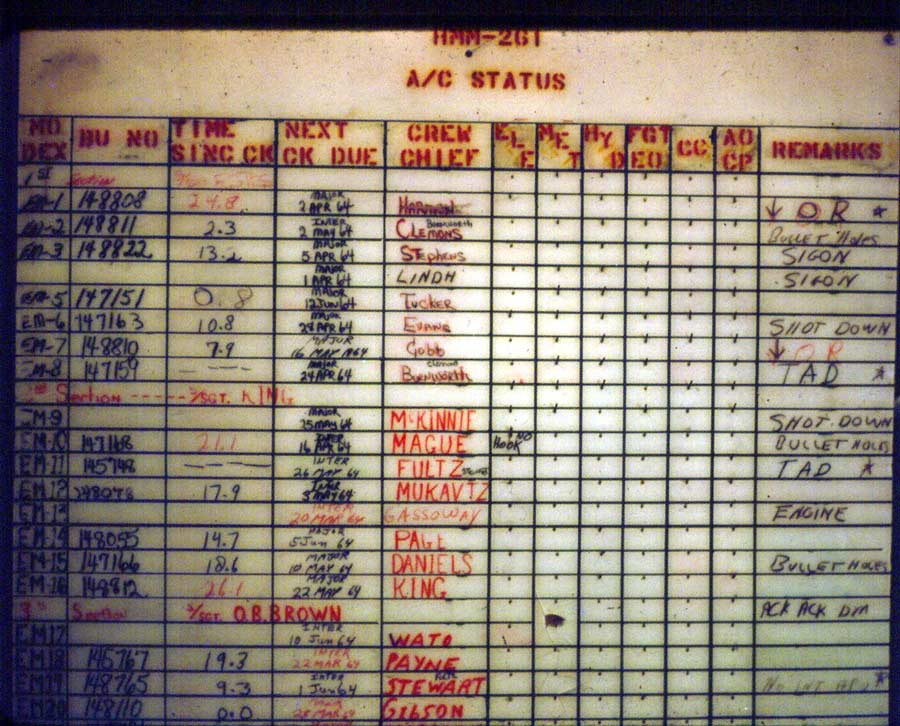 HMM-261
A/C STATUS
MO DEX BU NO TIME SINC CK NEXT CK DUE CREW CHIEF ELE MET HYD FGT EQ CC AO CP REMARKS
1ST Section
EM-1 148808 24.8 MAJOR 2 APR 64 ↓ OR *
EM-2 148811 2.3 INTER 2 MAY 64 CLEMONS BULLET HOLES
EM-3 148822 13.2 MAJOR 5 APR 64 STEPHENS SIGON
MAJOR 1 APR 64 LINDH SIGON
EM-5 147151 0.8 MAJOR 12 JUN 64 TUCKER
EM-6 147163 10.8 MAJOR 28 APR 64 EVANS SHOT DOWN
EM-7 148810 7.9 MAJOR 16 MAY 1964 GOBB ↓ OR
EM-8 147159 ---- MAJOR 24 APR 64 TAD *
2nd Section ----- S/SGT. KING
EM-9 MAJOR 25 MAY 64 McKINNIE SHOT DOWN
EM-10 147168 21.1 16 APR 64 MAGUE NO HOOK BULLET HOLES
EM-11 145748 ----- INTER 26 MAY 64 FULTZ TAD *
EM-12 148078 17.9 INTER 3 MAY 64 MUKAVTZ
EM-13 INTER 20 MAR 64 GASSOWAY ENGINE
EM-14 148055 14.7 MAJOR 5 Jun 64 PAGE
EM-15 147166 18.6 MAJOR 10 MAY 64 DANIELS BULLET HOLES
EM-16 148812 26.1 MAJOR 22 MAY 64 KING
3rd Section S/SGT. O.B. BROWN ACK ACK DM
EM17 INTER 10 Jun 64 WATO
EM18 145767 19.3 INTER 22 MAR 64 PAYNE
EM19 148765 9.3 INTER 1 Jun 64 STEWART *
EM20 148110 0.0 28 MAR 64 GIBSON